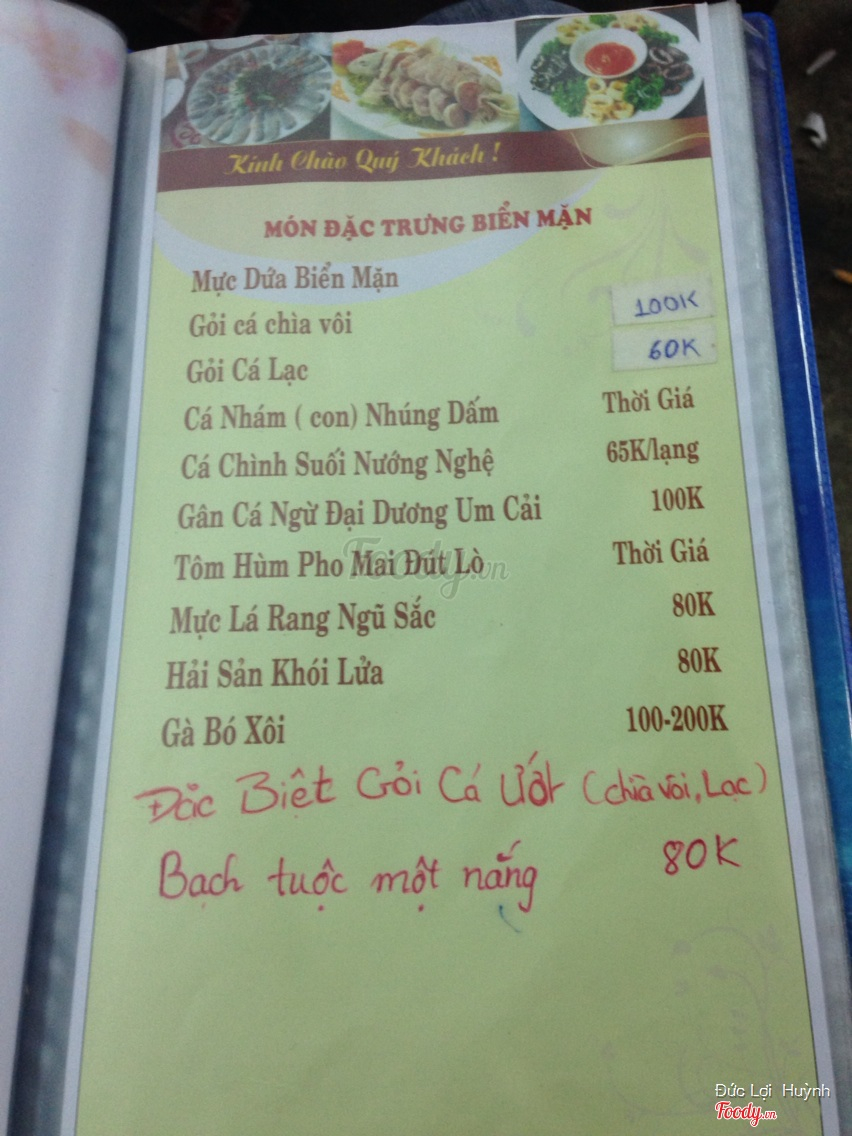 Kính Chào Quý Khách !
MÓN ĐẶC TRƯNG BIỂN MẶN
Mực Dứa Biển Mặn
Gỏi cá chìa vôi 100K
Gỏi Cá Lạc 60K
Cá Nhám ( con) Nhúng Dấm Thời Giá
Cá Chình Suối Nướng Nghệ 65K/lạng
Gân Cá Ngừ Đại Dương Um Cải 100K
Tôm Hùm Pho Mai Đút Lò Thời Giá
Mực Lá Rang Ngũ Sắc 80K
Hải Sản Khói Lửa 80K
Gà Bó Xôi 100-200K
Đặc Biệt Gỏi Cá Ướt (chìa vôi, Lạc)
Bạch tuộc một nắng 80K
Foody.vn
Đức Lợi Huỳnh
Foody.vn